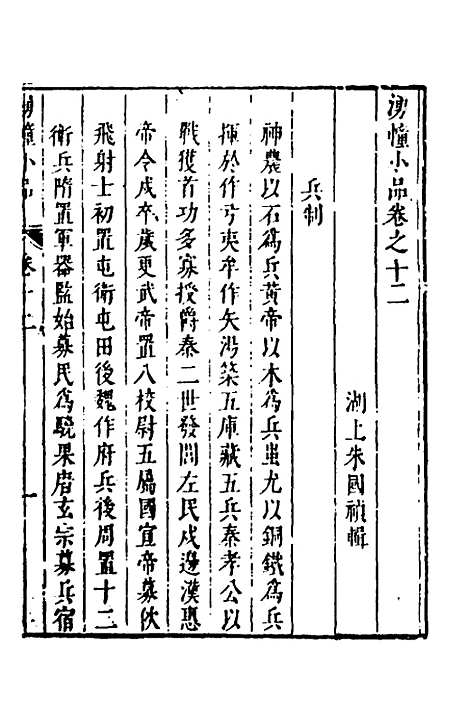 湧幢小品卷之十二
湖上朱國禎輯
兵制
神農以石爲兵黃帝以木爲兵蚩尤以銅鐵爲兵
揮於作弓夷牟作矢湯築五庫藏五兵秦孝公以
戰獲首功多寡授爵秦二世發閭左民戍邊漢惠
帝令戍卒歲更武帝置八校尉五屬國宣帝募佽
飛射士初置屯衛屯田後魏作府兵後周置十二
衛兵隋置軍器監始募民爲驍果唐玄宗募兵宿
湧幢小品 卷十二 一